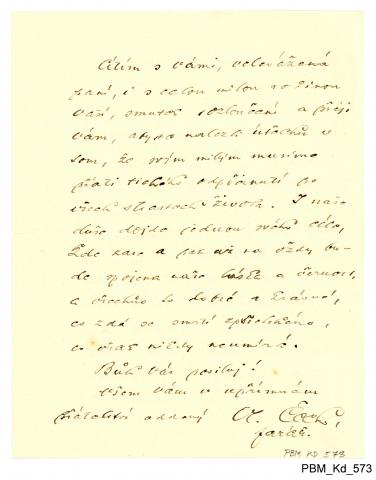 Cítím s Vámi, velevážená
paní, i s celou milou rodinou
Vaší, smutek rozloučení a přeji
Vám, abyste nalezli útěchu v
tom, že svým milým musíme
přáti tichého odpočinutí po
všech strastech života. I naše
duše dojde jednou svého cíle,
kde zase a pak už na vždy bu-
de spojena naše láska a věrnost,
a všechno to dobré a krásné,
co zdá se smrtí zpřetrháno,
co však nikdy neumírá.
Bůh Vás posiluj!
Vším Vám v upřímném
přátelství oddaný
farář.
PBM KD 573
PBM_Kd_573